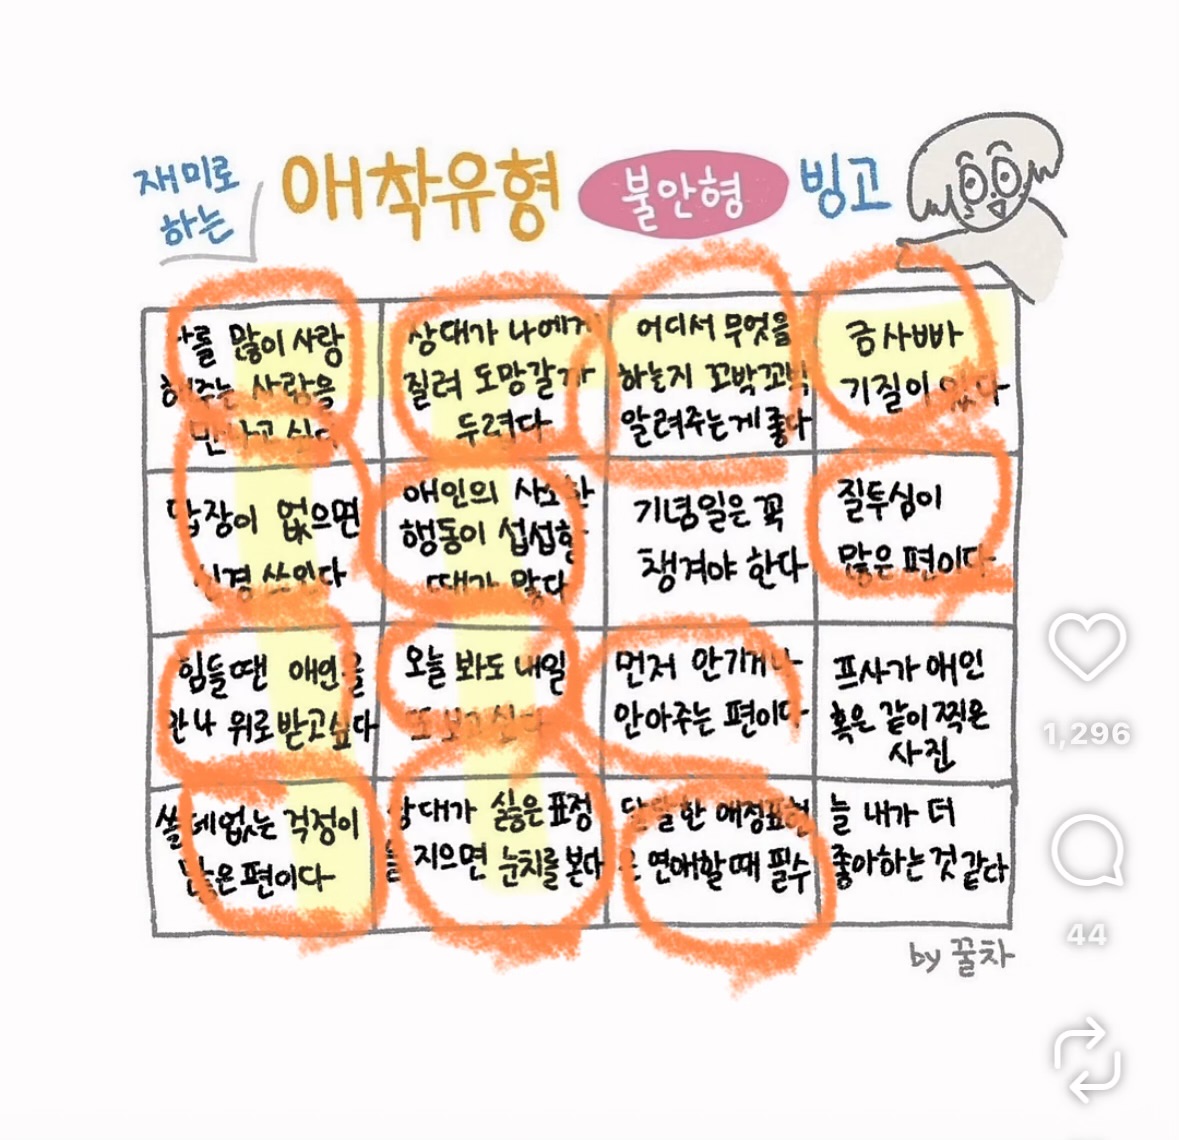 재미로
하는
애착유형 불안형 빙고
나를 많이 사랑
해주는 사람을
만나고 싶다
상대가 나에게
질려 도망갈까
두렵다
어디서 무엇을
하는지 꼬박꼬박
알려주는게 좋다
금사빠
기질이 있다
답장이 없으면
신경 쓰인다
애인의 사소한
행동이 섭섭할
때가 많다
기념일은 꼭
챙겨야 한다
질투심이
많은 편이다
힘들땐 애인을
만나 위로 받고싶다
오늘 봐도 내일
또 보고싶다
먼저 안기거나
안아주는 편이다
프사가 애인
혹은 같이 찍은
사진
쓸데없는 걱정이
많은 편이다
상대가 싫은 표정
을 지으면 눈치를 본다
달달한 애정표현
은 연애할때 필수
늘 내가 더
좋아하는 것 같다
by 꿀차
1,296
44